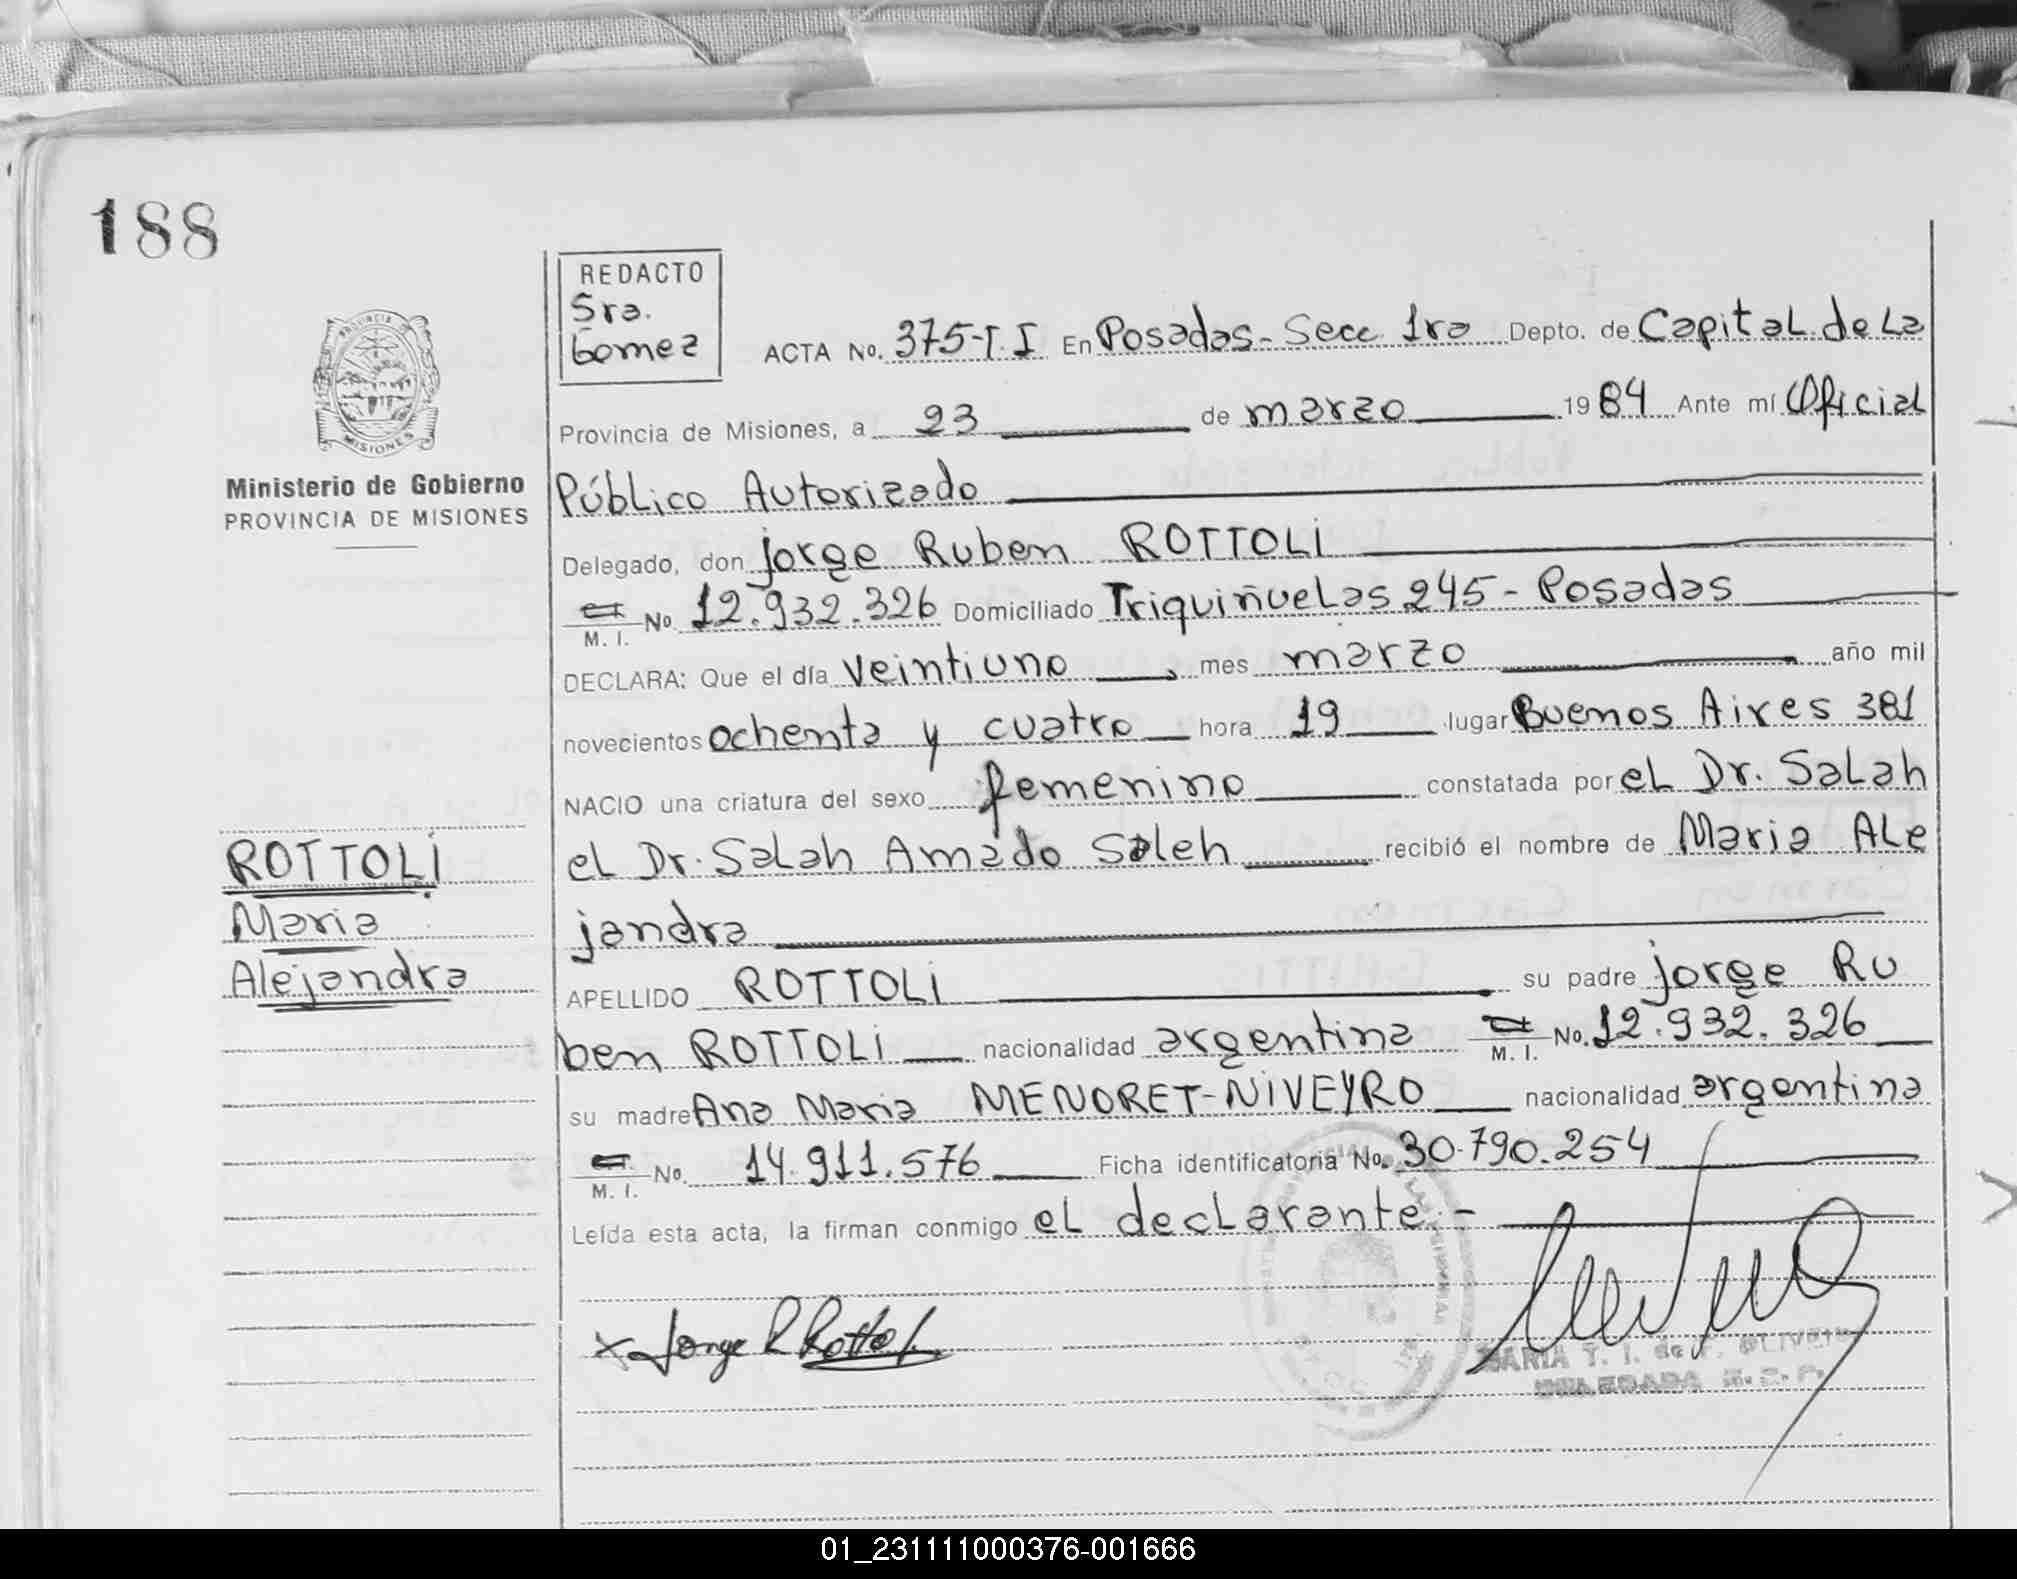 188
REDACTO
Sra.
Gomez
ACTA No. 375-T.I En Posadas - Secc 1ra Depto. de Capital de La
Provincia de Misiones, a 23 de marzo 1984 Ante mí Oficial
PROVINCIA DE
MISIONES
Ministerio de Gobierno
PROVINCIA DE MISIONES
Público Autorizado
Delegado, don Jorge Ruben ROTTOLI
M. I. No. 12.932.326 Domiciliado Triquiñuelas 245 - Posadas
DECLARA: Que el día veintiuno, mes marzo año mil
novecientos ochenta y cuatro hora 19 lugar Buenos Aires 381
NACIO una criatura del sexo femenino constatada por el Dr. Salah
el Dr. Salah Amado Saleh recibió el nombre de Maria Ale
jandra
ROTTOLI
Maria
Alejandra
APELLIDO ROTTOLI su padre Jorge Ru
ben ROTTOLI nacionalidad argentina M. I. No. 12.932.326
su madre Ana Maria MENORET-NIVEYRO nacionalidad argentina
M. I. No. 14.911.576 Ficha identificatoria No. 30.790.254
Leída esta acta, la firman conmigo el declarante.-
x Jorge R Rottoli
MARIA T. I. de
DELEGADA R. S. P.
01_231111000376-001666